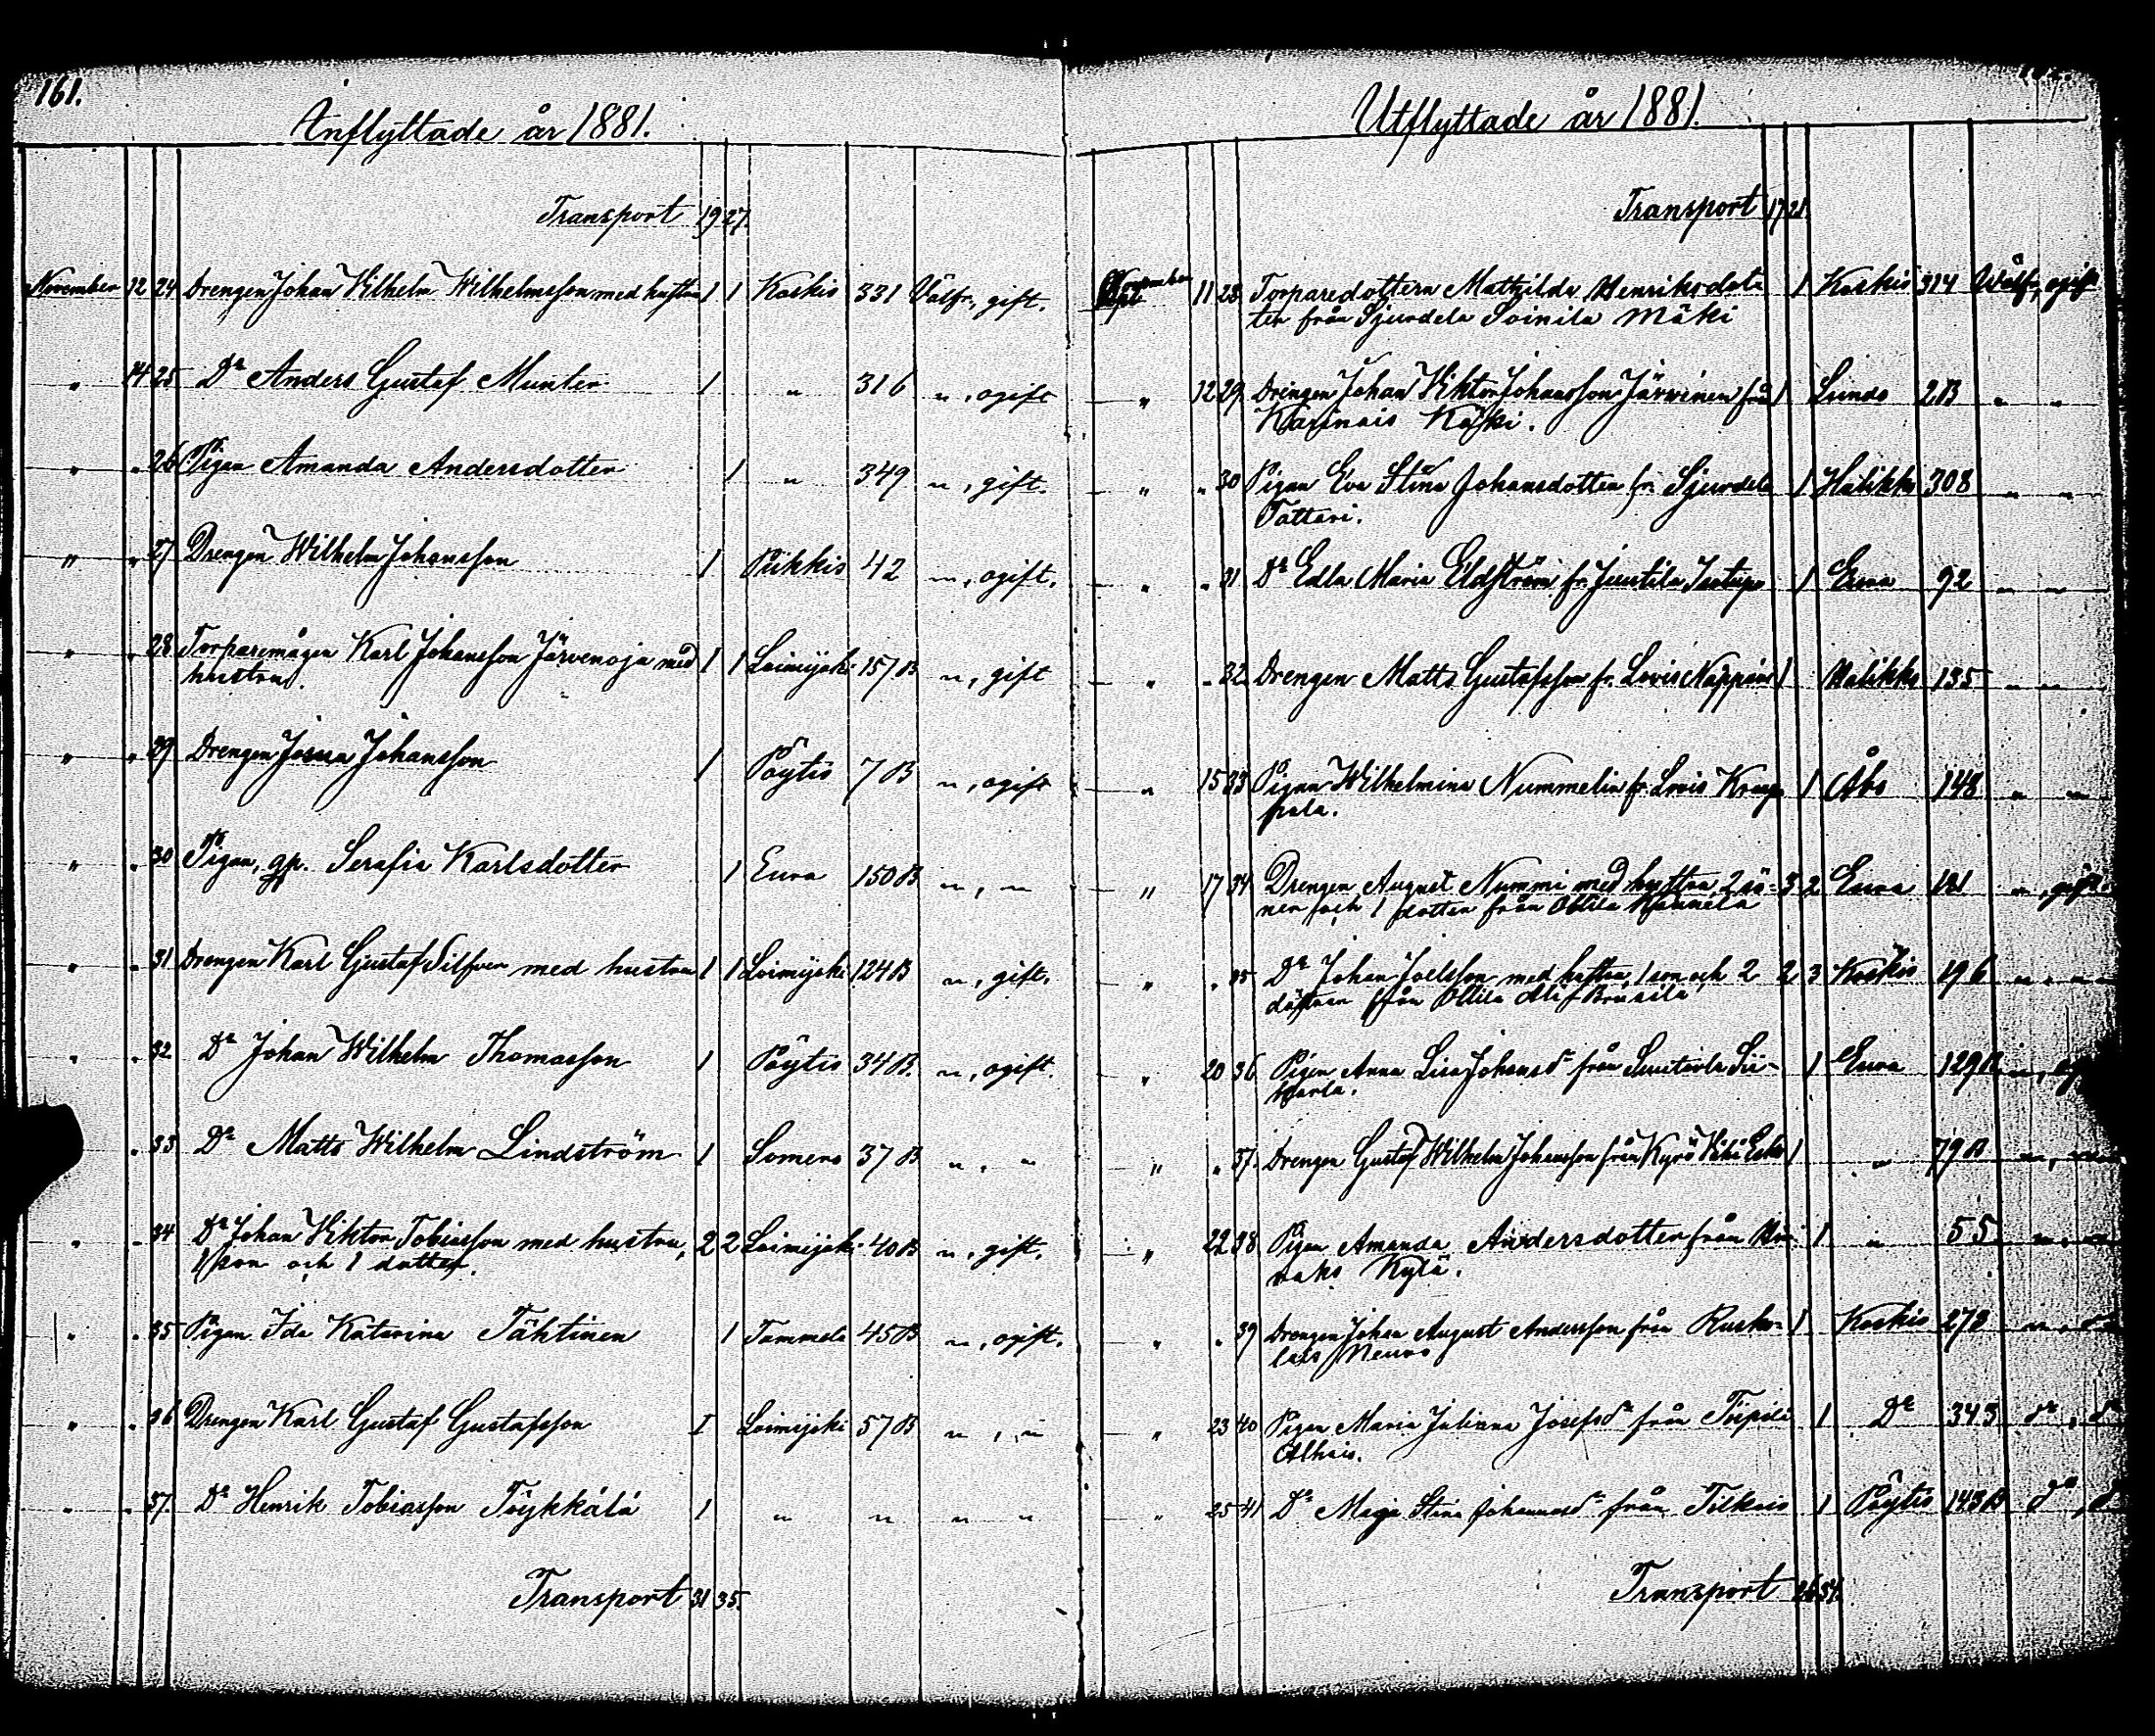 161.
Inflyttade år 1881.
Transport 19 27.
November 12 24 Drengen Johan Vilhelm Wilhelmsson med hustru 1 1 Koskis 331 Välfr., gift.
" 14 25 Do Anders Gustaf Munter 1 " 316 ", ogift
" " 26 Pigan Amanda Andersdotter 1 " 349 ", gift.
" " 27 Drengen Wilhelm Johansson 1 Pikkis 42 ", ogift.
" " 28 Torparemågen Karl Johansson Järvenoja med 1 1 Loimijoki 157 B ", gift
hustru.
" " 29 Drengen Josua Johansson 1 Pöytis 7 B ", ogift
" " 30 Pigan, gp. Serafia Karlsdotter 1 Eura 150 B ", "
" " 31 Drengen Karl Gustaf Silfver med hustru 1 1 Loimijoki 124 B ", gift.
" " 32 Do Johan Wilhelm Thomasson 1 Pöytis 34 B. ", ogift.
" 33 Do Matts Wilhelm Lindström 1 Somero 37 B ", "
" " 34 Do Johan Viktor Tobiasson med hustru, 2 2 Loimijoki 40 B ", gift.
1 son och 1 dotter.
" " 35 Pigan Ida Katarina Tähtinen 1 Tammela 45 B ", ogift.
" " 36 Drengen Karl Gustaf Gustafsson 1 Loimijoki 57 B ", "
" " 37. Do Henrik Tobiasson Töykkälä 1 " " " "
Transport 31 35.
Utflyttade år 1881.
Transport 17 21.
November 11 28 Torparedottern Mathilda Henriksdot- 1 Koskis 314 Välfr., ogift
ter från Sjurdela Soinila Mäki
" 12 29 Drengen Johan Viktor Johansson Järvinen från 1 Lundo 2 B " "
Karinais Käski.
" " 30 Pigan Eva Stina Johansdotter fr. Sjurdela 1 Halikko 308 " "
Tattari.
" " 31 Do Edla Maria Eldström fr. Juntila 1 Eura 92 " "
" " 32 Drengen Matts Gustafsson fr. Lovis 1 Halikko 135 " "
" 15 33 Pigan Wilhelmina Nummelin fr. Lovis 1 Åbo 148 " "
pala.
" 17 34 Drengen August Nummi med hustru, 2 sö- 3 2 Eura 121 ", gift.
ner och 1 dotter från Ollila
" " 35 Do Johan Joelsson med hustru, 1 son och 2 2 3 Koskis 196 ", "
döttrar från Ollila
" 20 36 Pigan Anna Lisa Johansdr från 1 Eura 129 B ",
" " 37. Drengen Gustaf Wilhelm Johansson från Kyrö 1 " 79 B ", "
" 22 38 Pigan Amanda Andersdotter från 1 " 55 ", "
Kylä.
" " 39 Drengen Johan August Andersson från Rusko- 1 Koskis 272 ", "
lais
" 23 40 Pigan Maria Juliana Josefsdr från 1 Do 343 do, do
" 25 41 Do Maja Stina Johansdr från 1 Pöytis 143 B do,
Transport 26 34.